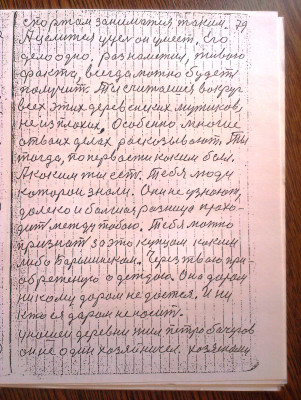 спортом занимался таким. 79
А целится уцел он умеет. Его
дело одно. Разнометил, живого
факто, всегда можно будет
получит. Ты считаешся вокруг
всех этих деревенских мужиков,
не из плохих, Особенно многие
отвоих делах рассказывают. Ты
тогда, по первости каким был.
А каким ты сеть. Тебя люди
которои знали. Они не узнают,
далеко и болшая разница прохо-
дит между тобою. Тебя можно
признат за это купцом каким
либо Барышником. Через твою при-
обретенную одежду. Она даром
никому даром не дается, И ни
кто ея даром не носит.
унашей деревни жил петро бочуров
он не один хозяйничел. хозяеном